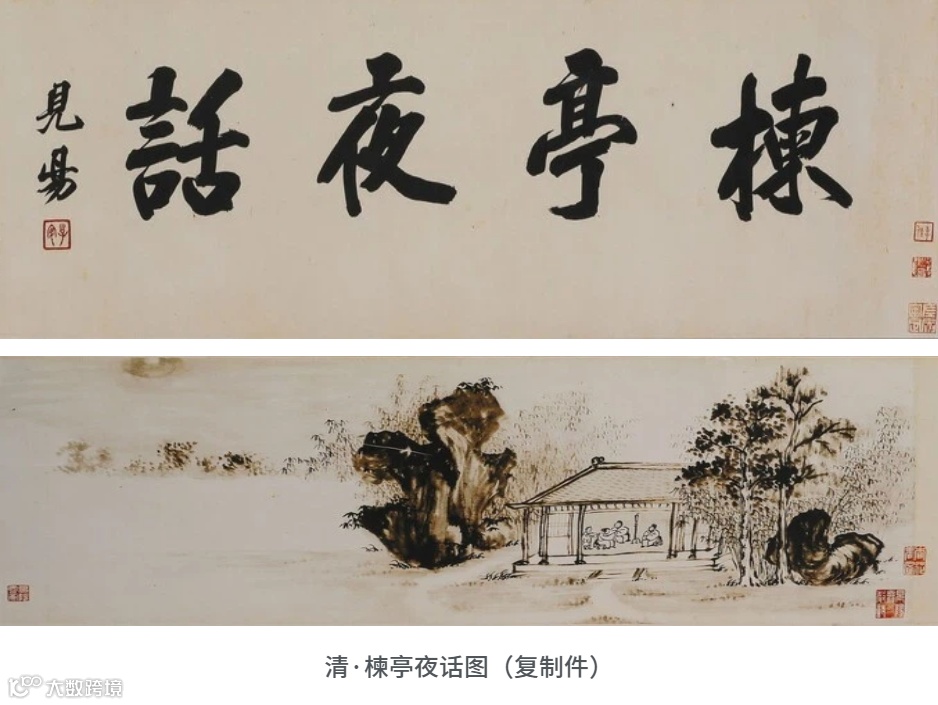 楝亭夜話
見昜
清·楝亭夜话图（复制件）
大数跨境